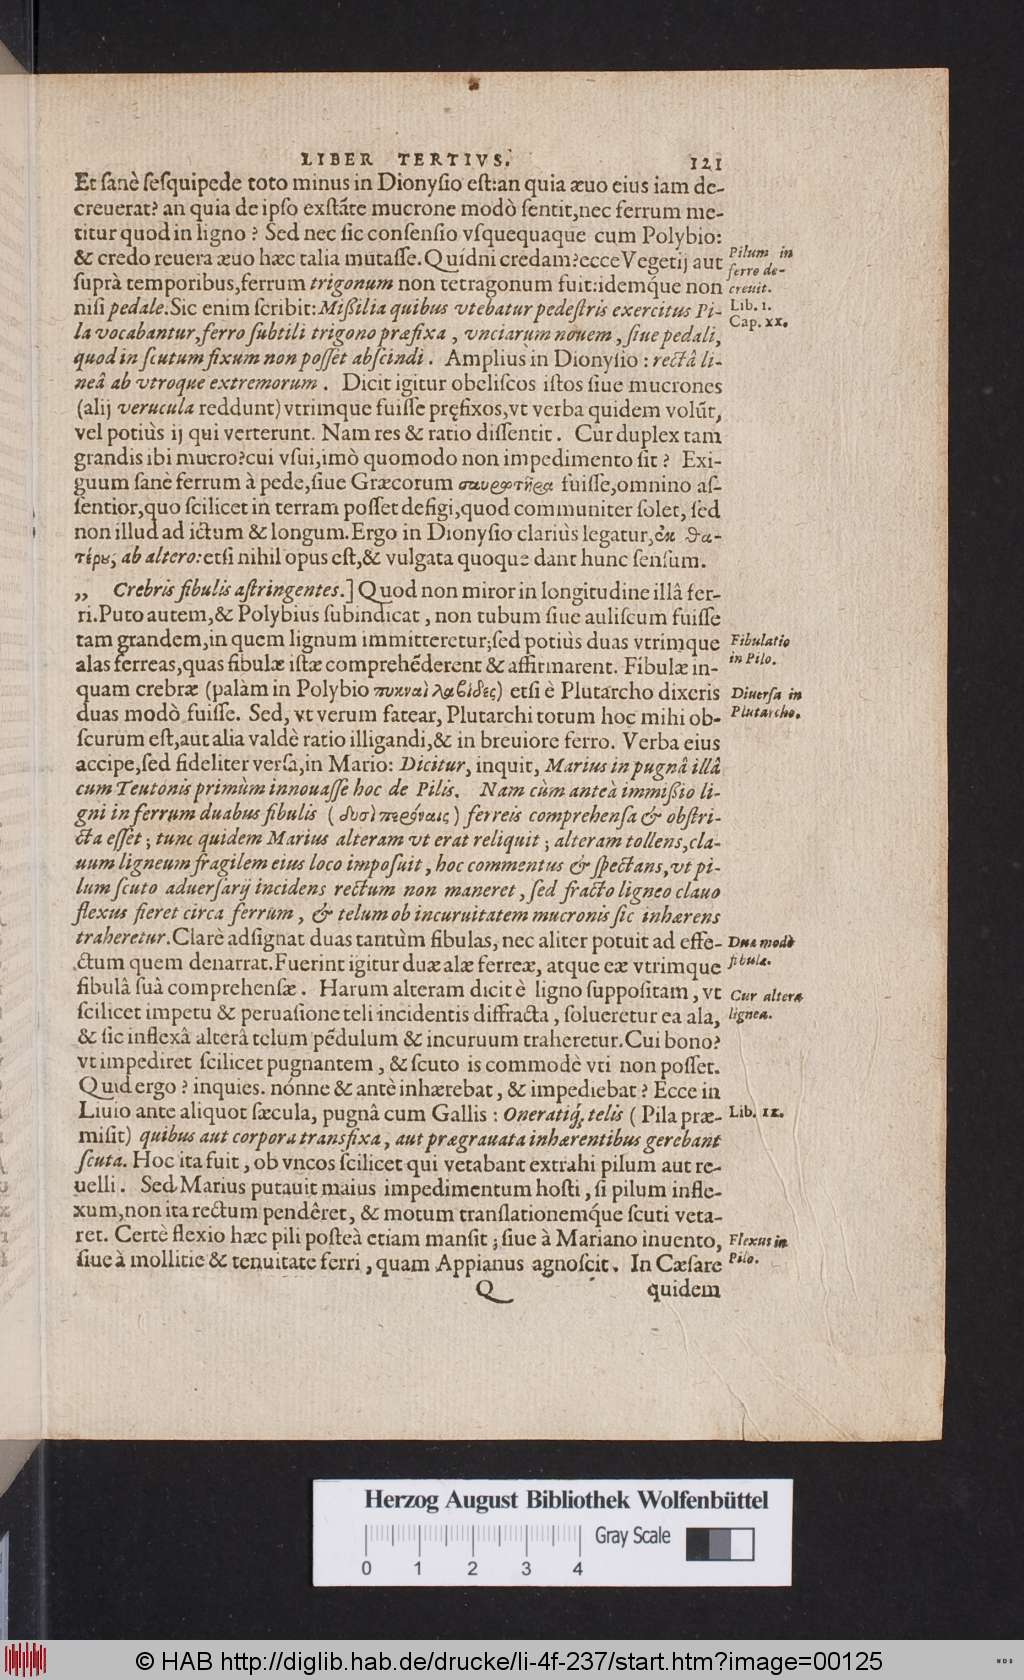 LIBER TERTIVS. 121
Et ſanè ſeſquipede toto minus in Dionyſio eſt:an quia æuo eius iam de-
creuerat? an quia de ipſo exſtãte mucrone modò ſentit,nec ferrum me-
titur quod in ligno? Sed nec ſic conſenſio vſquequaque cum Polybio:
& credo reuera æuo hæc talia mutaſſe. Quídni credam?ecce Vegetij aut
Pilum in
ferro de-
creuit.
ſuprà temporibus,ferrum trigonum non tetragonum fuit:idemq́ue non
niſi pedale.Sic enim ſcribit:Mißilia quibus vtebatur pedeſtris exercitus Pi-
Lib. 1.
Cap. xx.
la vocabantur,ferro ſubtili trigono præfixa, vnciarum nouem, ſiue pedali,
quod in ſcutum fixum non poſſet abſcindi. Ampliùs in Dionyſio: rectâ li-
neâ ab vtroque extremorum. Dicit igitur obeliſcos iſtos ſiue mucrones
(alij verucula reddunt) vtrimque fuiſſe pręfixos,vt verba quidem volũt,
vel potiùs ij qui verterunt. Nam res & ratio diſſentit. Cur duplex tam
grandis ibi mucro?cui vſui,imò quomodo non impedimento ſit? Exi-
guum ſanè ferrum à pede,ſiue Græcorum σαυρωτῆρα fuiſſe,omnino aſ-
ſentior,quo ſcilicet in terram poſſet defigi,quod communiter ſolet, ſed
non illud ad ictum & longum.Ergo in Dionyſio clariùs legatur,ἐκ θα-
τέρου, ab altero:etſi nihil opus eſt,& vulgata quoque dant hunc ſenſum.
„ Crebris fibulis aſtringentes.] Quod non miror in longitudine illâ fer-
ri.Puto autem,& Polybius ſubindicat, non tubum ſiue auliſcum fuiſſe
tam grandem,in quem lignum immitteretur;ſed potiùs duas vtrimque
Fibulatio
in Pilo.
alas ferreas,quas fibulæ iſtæ comprehẽderent & affirmarent. Fibulæ in-
quam crebræ (palàm in Polybio πυκναὶ λαβίδες) etſi è Plutarcho dixeris
Diuerſa in
Plutarcho.
duas modò fuiſſe. Sed, vt verum fatear, Plutarchi totum hoc mihi ob-
ſcurum eſt,aut alia valdè ratio illigandi,& in breuiore ferro. Verba eius
accipe,ſed fideliter verſa,in Mario: Dicitur, inquit, Marius in pugnâ illâ
cum Teutonis primùm innouaſſe hoc de Pilis. Nam cùm anteà immißio li-
gni in ferrum duabus fibulis (δυσὶ περόναις) ferreis comprehenſa & obſtri-
cta eſſet; tunc quidem Marius alteram vt erat reliquit; alteram tollens,cla-
uum ligneum fragilem eius loco impoſuit, hoc commentus & ſpectans,vt pi-
lum ſcuto aduerſarij incidens rectum non maneret, ſed fracto ligneo clauo
flexus fieret circa ferrum, & telum ob incuruitatem mucronis ſic inhærens
traheretur.Clarè adſignat duas tantùm fibulas, nec aliter potuit ad effe-
Duæ modò
fibulæ.
ctum quem denarrat.Fuerint igitur duæ alæ ferreæ, atque eæ vtrimque
fibulâ ſuâ comprehenſæ. Harum alteram dicit è ligno ſuppoſitam, vt
Cur altera
lignea.
ſcilicet impetu & peruaſione teli incidentis diffracta, ſolueretur ea ala,
& ſic inflexâ alterâ telum pẽdulum & incuruum traheretur.Cui bono?
vt impediret ſcilicet pugnantem, & ſcuto is commodè vti non poſſet.
Quid ergo? inquies. nónne & antè inhærebat, & impediebat? Ecce in
Liuio ante aliquot ſæcula, pugnâ cum Gallis: Oneratiq́; telis (Pila præ-
Lib. IX.
miſit) quibus aut corpora transfixa, aut prægrauata inhærentibus gerebant
ſcuta. Hoc ita fuit, ob vncos ſcilicet qui vetabant extrahi pilum aut re-
uelli. Sed Marius putauit maius impedimentum hoſti, ſi pilum infle-
xum,non ita rectum pendêret, & motum translationemq́ue ſcuti veta-
ret. Certè flexio hæc pili poſteà etiam manſit; ſiue à Mariano inuento,
Flexus in
Pilo.
ſiue à mollitie & tenuitate ferri, quam Appianus agnoſcit. In Cæſare
Q quidem
Herzog August Bibliothek Wolfenbüttel
0 1 2 3 4
Gray Scale
© HAB http://diglib.hab.de/drucke/li-4f-237/start.htm?image=00125